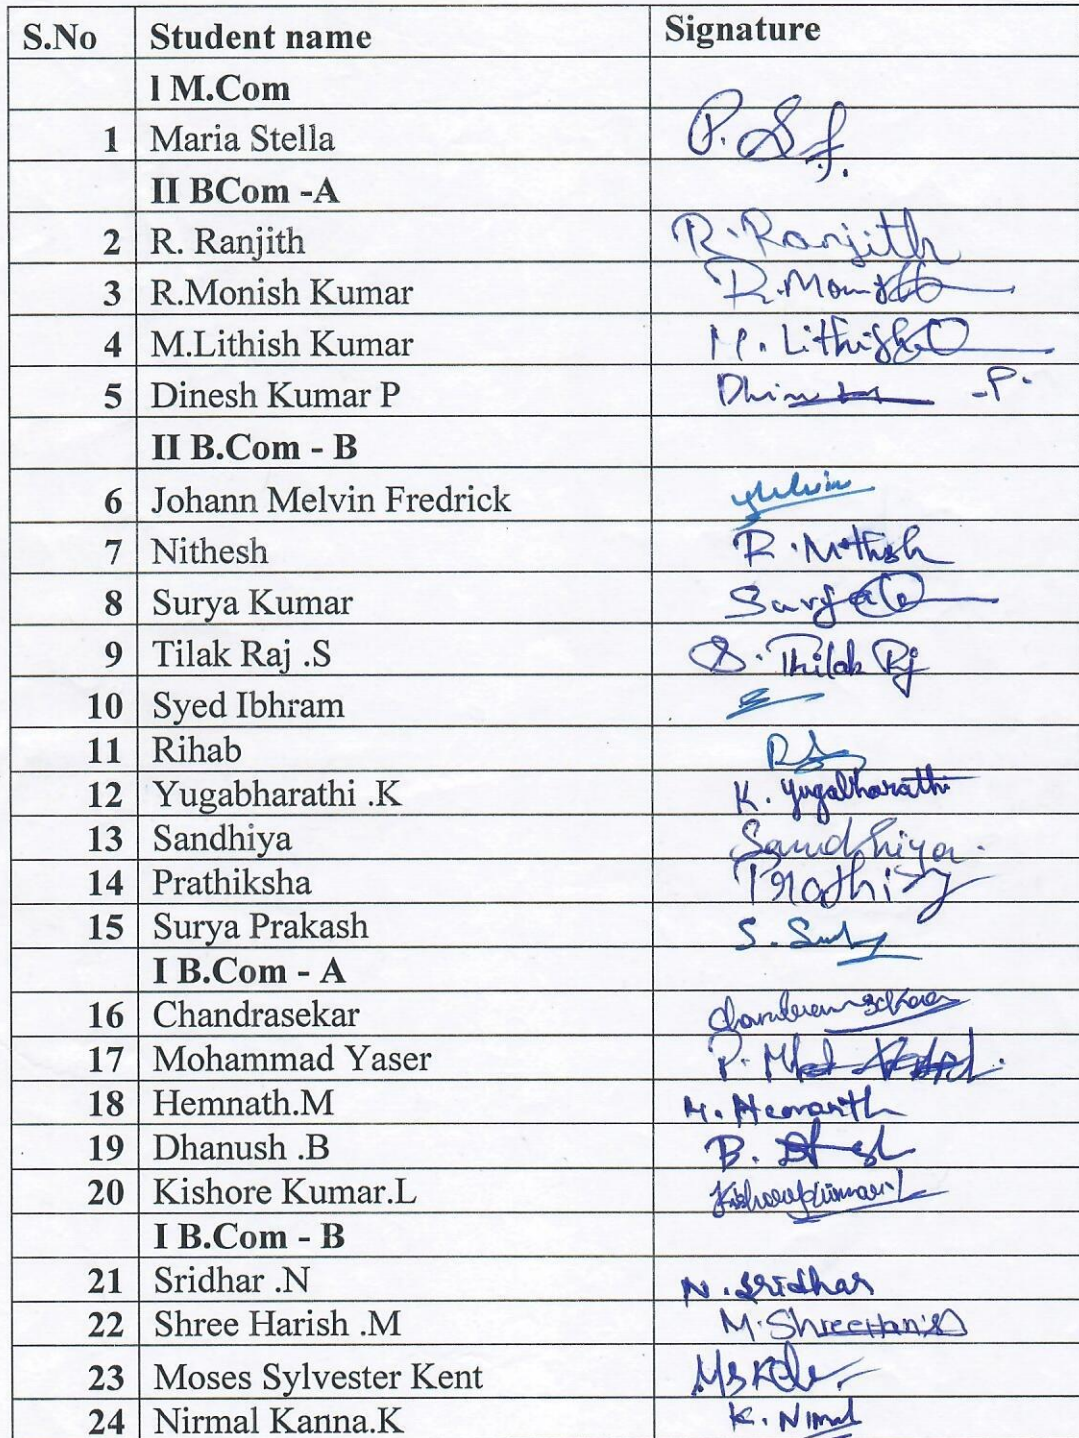 S.No Student name Signature
I M.Com
1 Maria Stella P.
II BCom -A
2 R. Ranjith R. Ranjith
3 R.Monish Kumar R.
4 M.Lithish Kumar M. Lithish
5 Dinesh Kumar P P.
II B.Com - B
6 Johann Melvin Fredrick
7 Nithesh R. Nithesh
8 Surya Kumar
9 Tilak Raj .S S. Thilak Rj
10 Syed Ibhram
11 Rihab
12 Yugabharathi .K K. Yugabharathi
13 Sandhiya Sandhiya.
14 Prathiksha Prathi
15 Surya Prakash S.
I B.Com - A
16 Chandrasekar
17 Mohammad Yaser P.
18 Hemnath.M
19 Dhanush .B B.
20 Kishore Kumar.L Kishore Kumar.L
I B.Com - B
21 Sridhar .N N. Sridhar
22 Shree Harish .M M. Shree
23 Moses Sylvester Kent
24 Nirmal Kanna.K K. Nirmal